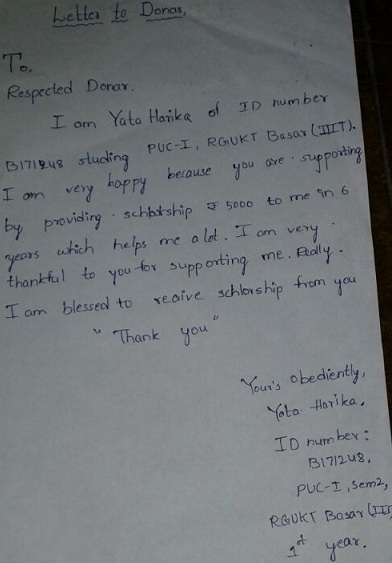 Letter to Donar,
To,
Respected Donar.
I am Yata Harika of ID number
B171248 studing PUC-I, RGUKT Basar (IIIT).
I am very happy because you are supporting
by providing scholarship ₹ 5000 to me in 6
years which helps me a lot. I am very
thankful to you for supporting me. Really.
I am blessed to receive schlorship from you
"Thank you"
Your's obediently,
Yata Harika,
ID number:
B171248,
PUC-I, Sem2,
RGUKT Basar (III
1st year.